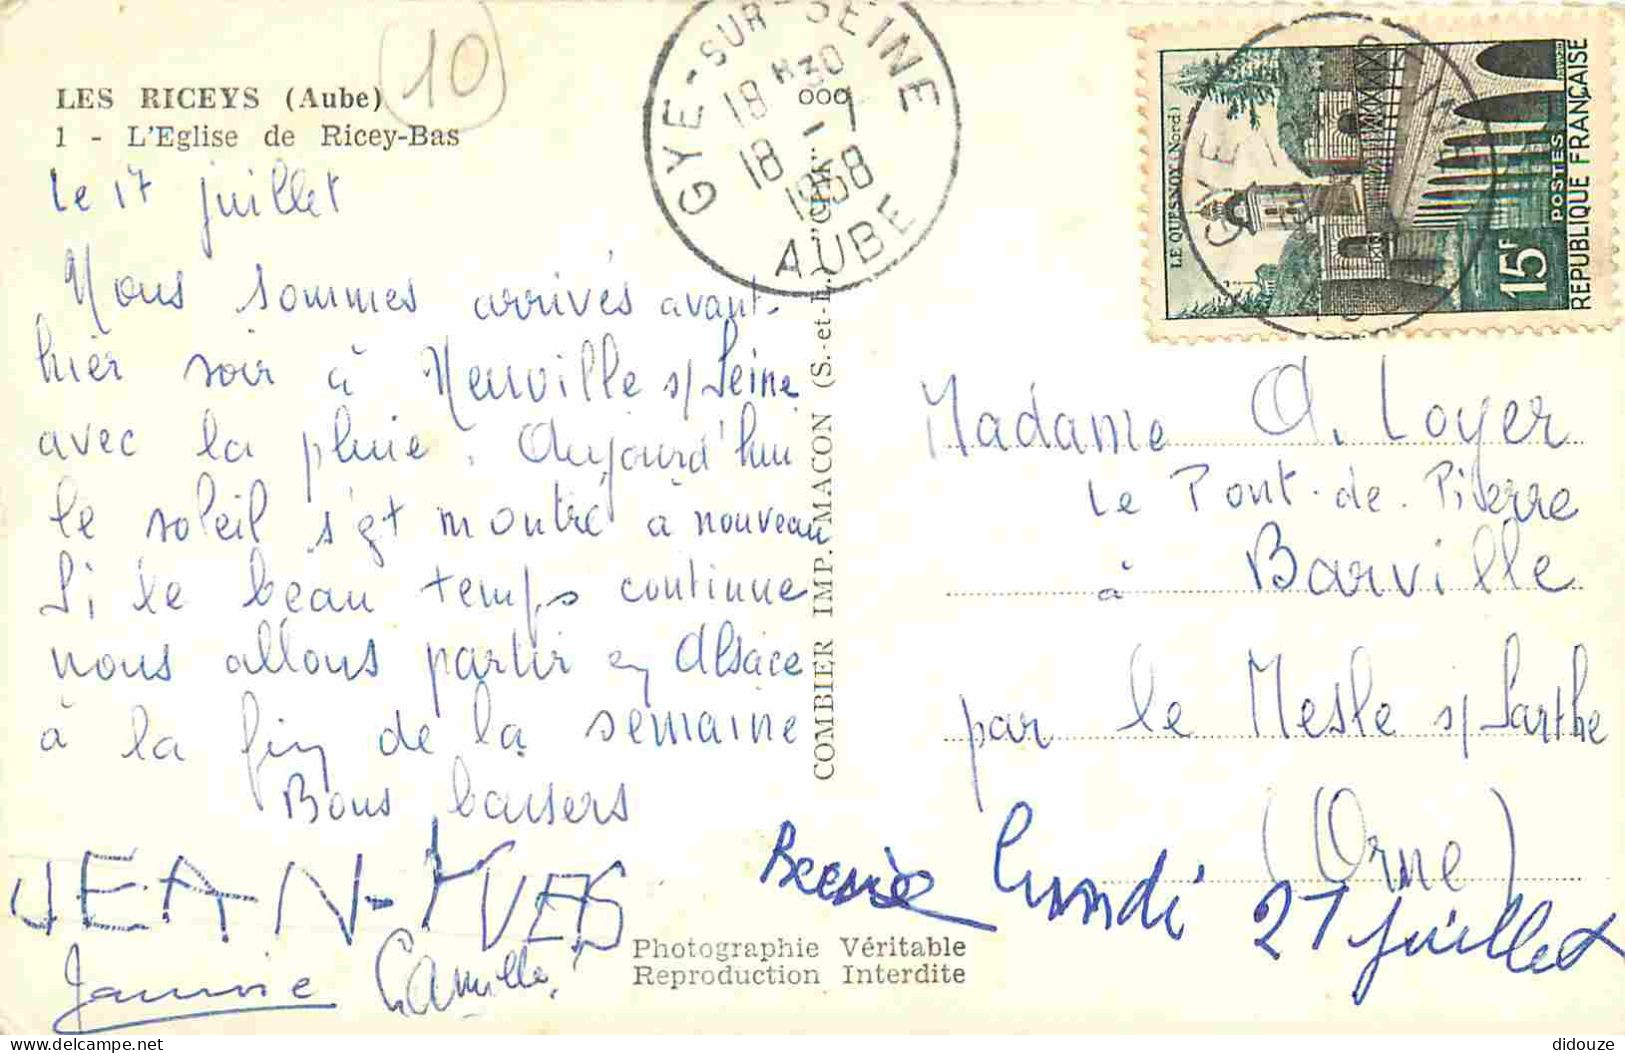 10
LES RICEYS (Aube)
1 - L'Eglise de Ricey-Bas
le 17 juillet
Nous sommes arrivés avant-
hier soir à Neuville s/Seine
avec la pluie. Aujourd'hui
le soleil s'est montré à nouveau
Si le beau temps continue
nous allons partir en Alsace
à la fin de la semaine
Bons baisers
JEAN-YVES
Jannie Camille
GYE-SUR-SEINE
18 H 30
18 - 7
1958
AUBE
COMBIER IMP. MACON (S.-et-L.)
LE QUESNOY (Nord)
15F
POSTES
REPUBLIQUE FRANÇAISE
GYE
Madame A. Loyer
Le Pont-de-Pierre
à Barville
par le Mesle s/Sarthe
(Orne)
lundi 21 juillet
Photographie Véritable
Reproduction Interdite
delcampe.net
didouze